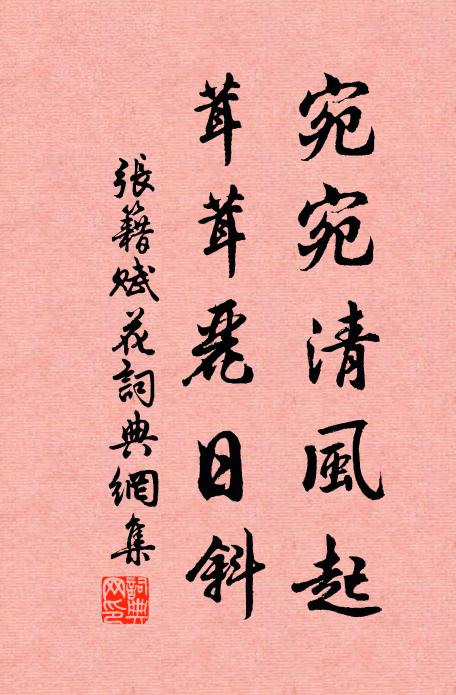 宛宛清風起
茸茸麗日斜
張籍賦花詞典網集
詞典網印